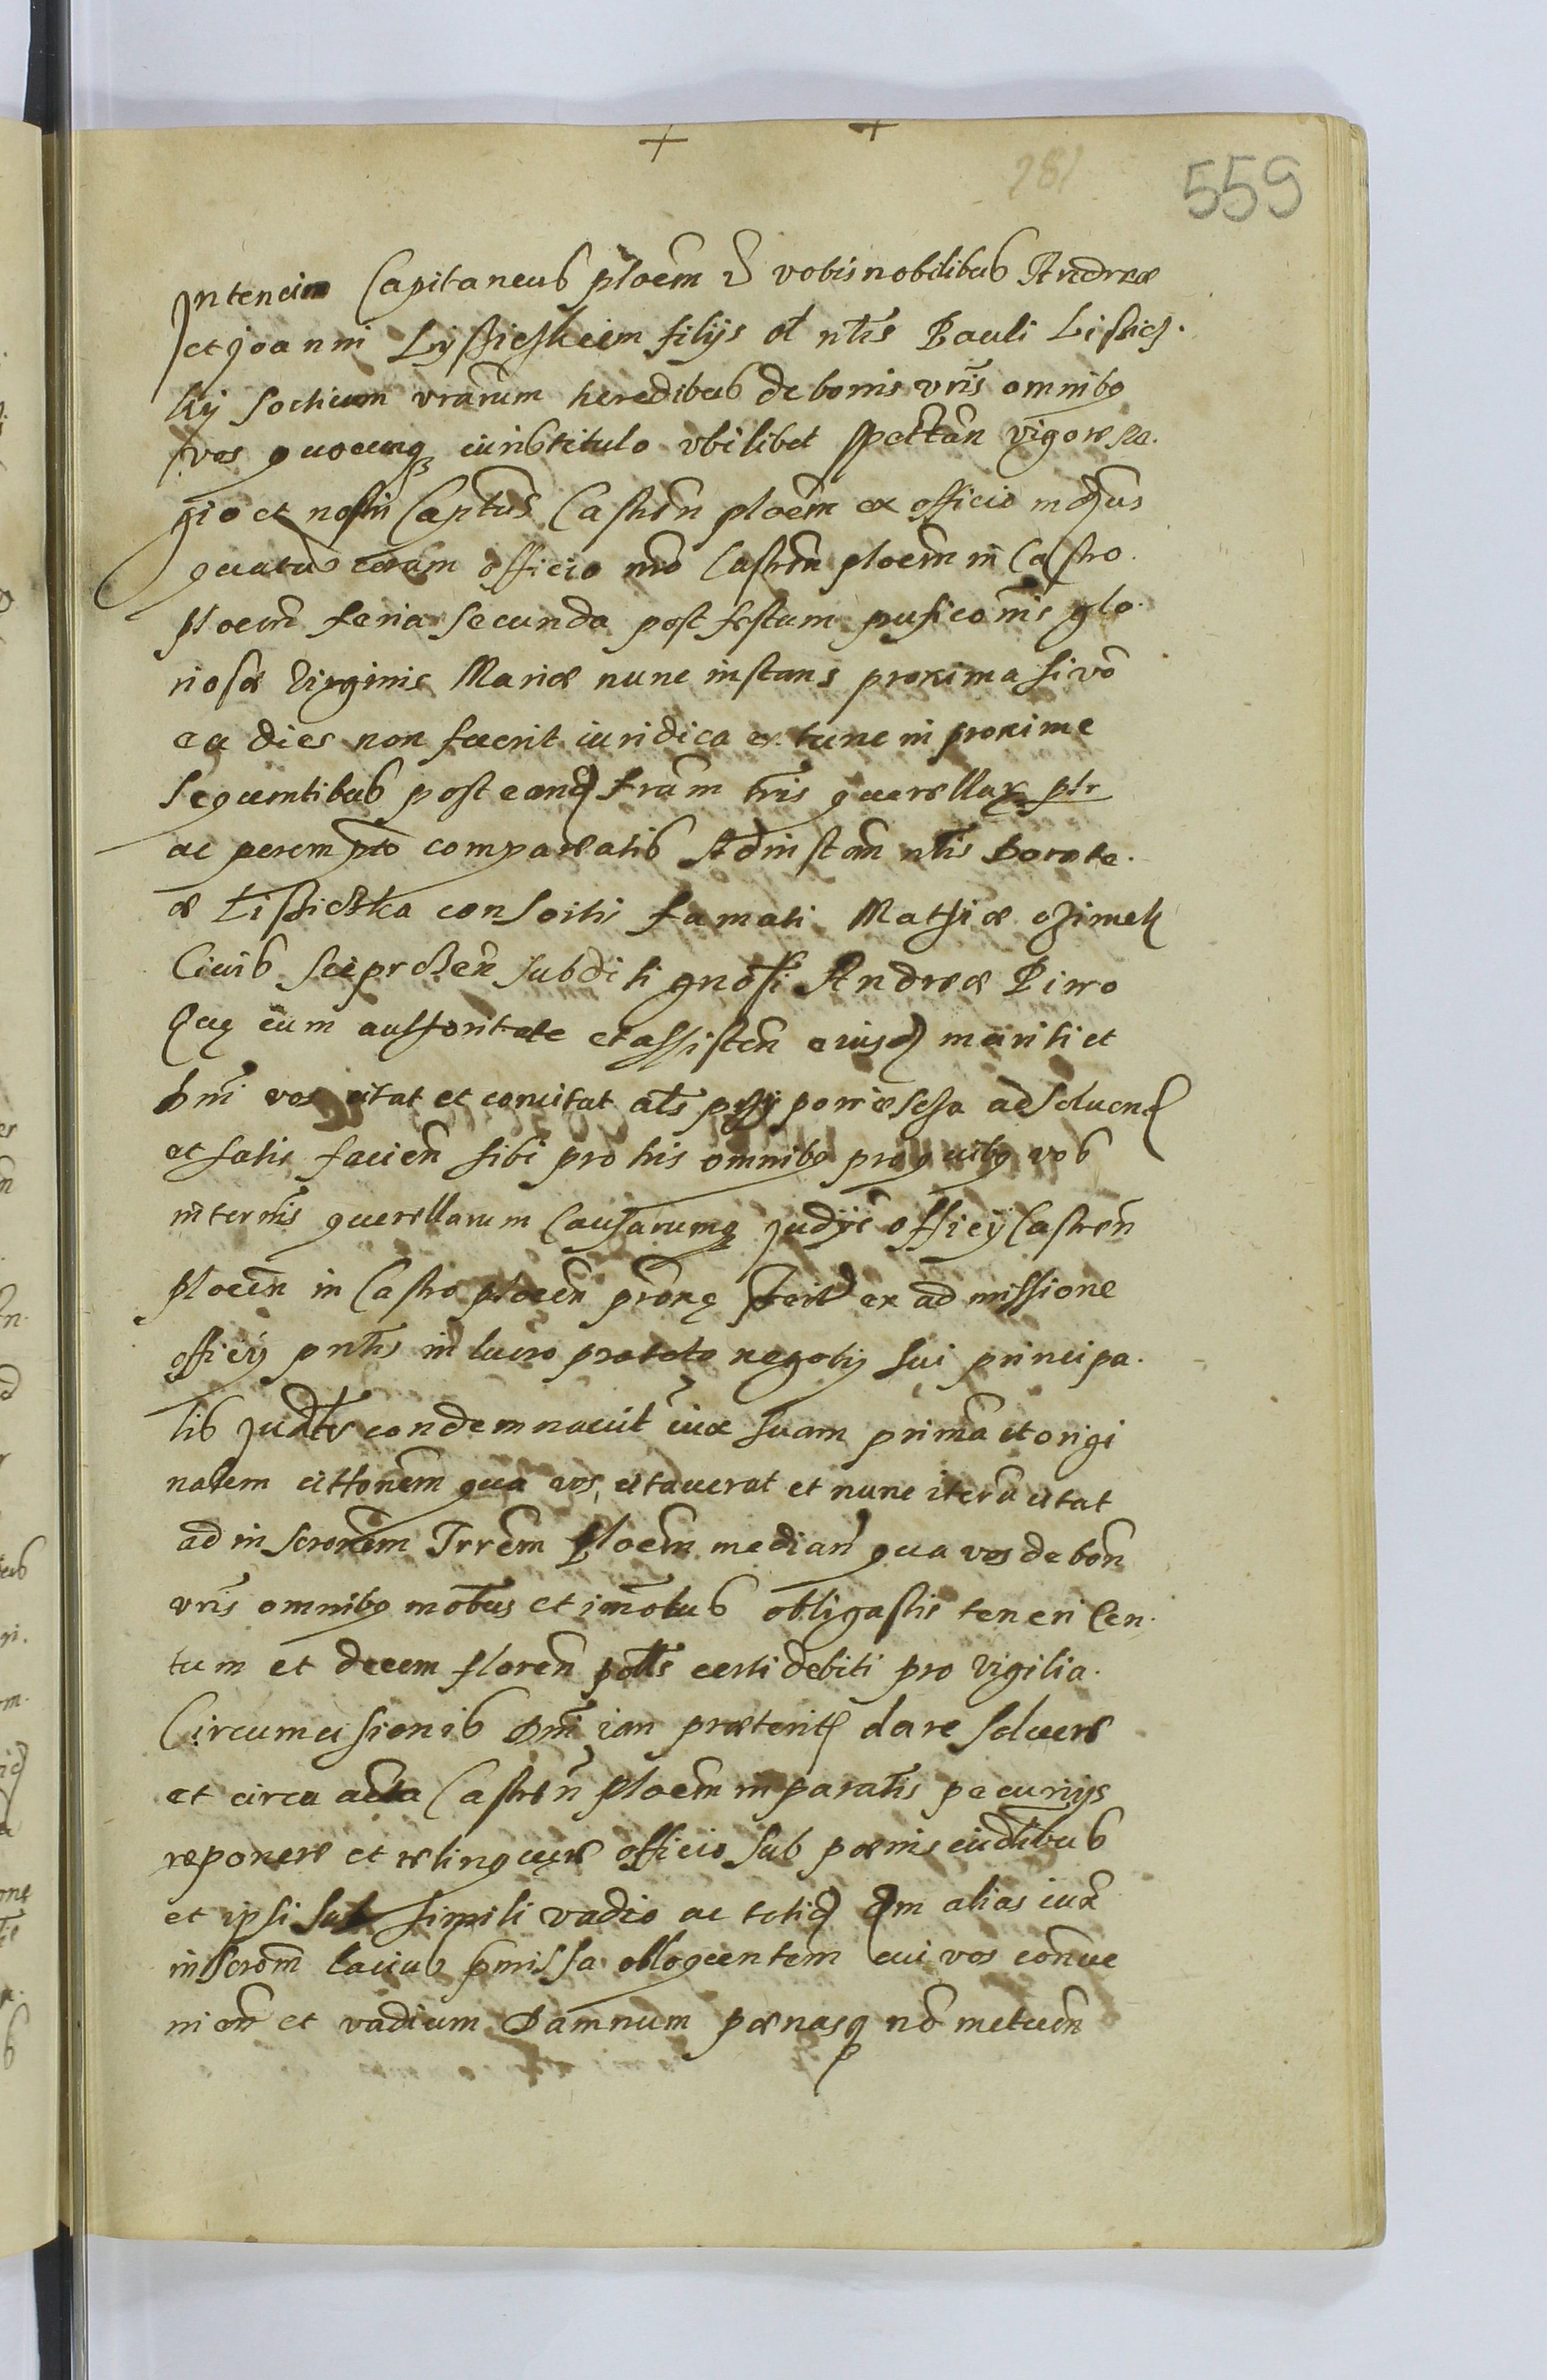 281
559
Capitaneus ploem vobis nobilibus Andreæ
et Joanni filijs ol nlis Pauli Lissicz.
kij vrarum heredibus de bonis vris omnibq
vos quocunq iuris titulo vbilibet spectan vigore re.
gio et nostri Captus Castren ploem ex officio mdmus
quatus coram officio nro Castren ploem in Castro
ploem feria secunda post festum puficonis glo.
riosæ Virginis Mariæ nunc instans proxima si vo
ea dies non fuerit iuridica ex tunc in proxime
sequentibus post eand fram tris querellar ptr
ac perempto compareatis Ad instan nlis Dorote.
æ Lissiczka consortis famati Mathiæ
Ciuis subditi gnosi Andreæ Pirro
Quę cum authoritate et assisten eiusd mariti et
dni vos citat et concitat als ad soluend
et satis facien sibi pro his omnibq pro quibq vos
in ternis querellarum Causarumq Judij officij Castren
ploem in Castro ploem ex admissione
officij pntis in lucro negotij sui principa.
lis Judltr condemnauit iux suam prima et origi
nalem cittonem qua vos citauerat et nunc iteru citat
ad inscronem Trrem Ploem median qua vos de bon
vris omnibq mobus et imobus obligastis teneri Cen.
tum et decem floren polls certi debiti pro vigilia
Circumcisionis Dni iam præterit dare soluere
et circa acta Castren ploem in paratis pecunijs
reponere et relinquere officio sub pœnis iudlibus
et ipsi sub simili vadio ac totid dm alias iux
inscrom latius pmissa obloquentem cui vos conue
nien et vadium Damnum pœnasq no metuen